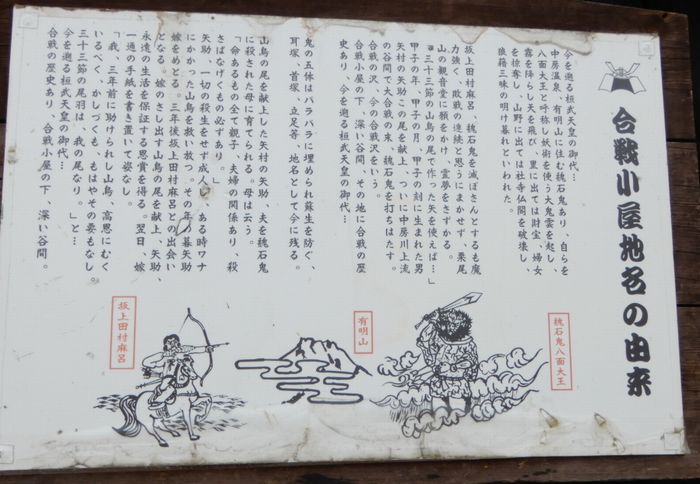 合戦小屋地名の由来
今を遡る桓武天皇の御代…
中房温泉、有明山に住む魏石鬼あり、自らを
八面大王と呼称し妖術を使う大鬼雲を起し、
霧を降らし天を飛び、里に出ては財宝、婦女
を掠奪し、山野に出ては社寺仏閣を破壊し、
狼籍三昧の明け暮れといわれた。
坂上田村麻呂、魏石鬼を滅ぼさんとするも魔
力強く、敗戦の連続と思うにまかせず、栗尾
山の観音堂に願をかけ、霊夢をさずかる。
「三十三節の山鳥の尾で作った矢を使えば…」
甲子の年、甲子の月、甲子の刻に生まれた男
矢村の矢助この尾を献上、ついに中房川上流
の谷間で大合戦の末、魏石鬼を打ちはたす。
合戦の沢、今の合戦沢をいう。
合戦小屋の下、深い谷間、その地に合戦の歴
史あり、今を遡る桓武天皇の御代…
鬼の五体はバラバラに埋められ蘇生を防ぐ、
耳塚、首塚、立足等、地名として今に残る。
山鳥の尾を献上した矢村の矢助、夫を魏石鬼
に殺された母に育てられる。母は云う。
「命あるもの全て親子、夫婦の関係あり、殺
さばなげくもの必ずあり。」
矢助、一切の殺生をせず成人し、ある時ワナ
にかかった山鳥を救い放つ。その年の暮矢助
嫁をめとる。三年後坂上田村麻呂との出会い
となる。嫁のさし出す山鳥の尾を献上、矢助、
永遠の生活を保証する恩賞を得る。翌日、嫁
一通の手紙を書き置いて姿なし。
「我、三年前に助けられし山鳥、高恩にむく
いるべく、かしづくも、もはやその要もなし。
三十三節の尾羽は、我の尾なり。」と…
今を遡る桓武天皇の御代…
合戦の歴史あり、合戦小屋の下、深い谷間。
魏石鬼八面大王
有明山
坂上田村麻呂